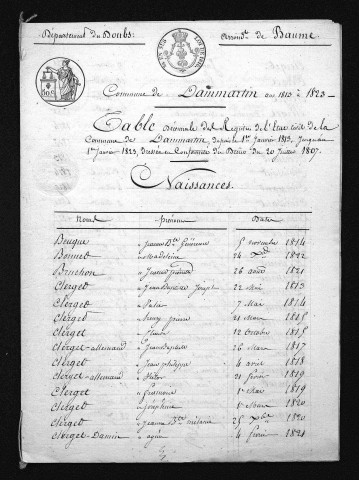 Département du Doubs.
Arrond.t de Baume.
Commune de Dammartin ans 1813 à 1823
Table décennale des Registres de l'Etat civil de la
Commune de Dammartin, depuis le 1er Janvier 1813, jusqu'au
1er Janvier 1823, dressée en Conformité du Décret du 20 Juillet 1807.
Naissances.
Noms Prénoms Date
Beuque Jeanne Bte 5 novembre 1814
Bonnet Madeleine 24 Xbre 1822
Bruchon 26 août 1821
Clerget Jean Baptiste Joseph 22 Mai 1813
Clerget 7 Mai 1814
Clerget pierre 21 Mars 1815
Clerget 12 Octobre 1815
Clerget-allemand Jean Baptiste 26 Mars 1817
Clerget Jean philippe 4 avril 1818
Clerget-allemand Victor 21 février 1819
Clerget françois 1er Mai 1819
Clerget Joséphine 1er Mars 1820
Clerget Jeanne Bte mélanie 25 Xbre 1820
Clerget-Damin agnès 4 février 1821